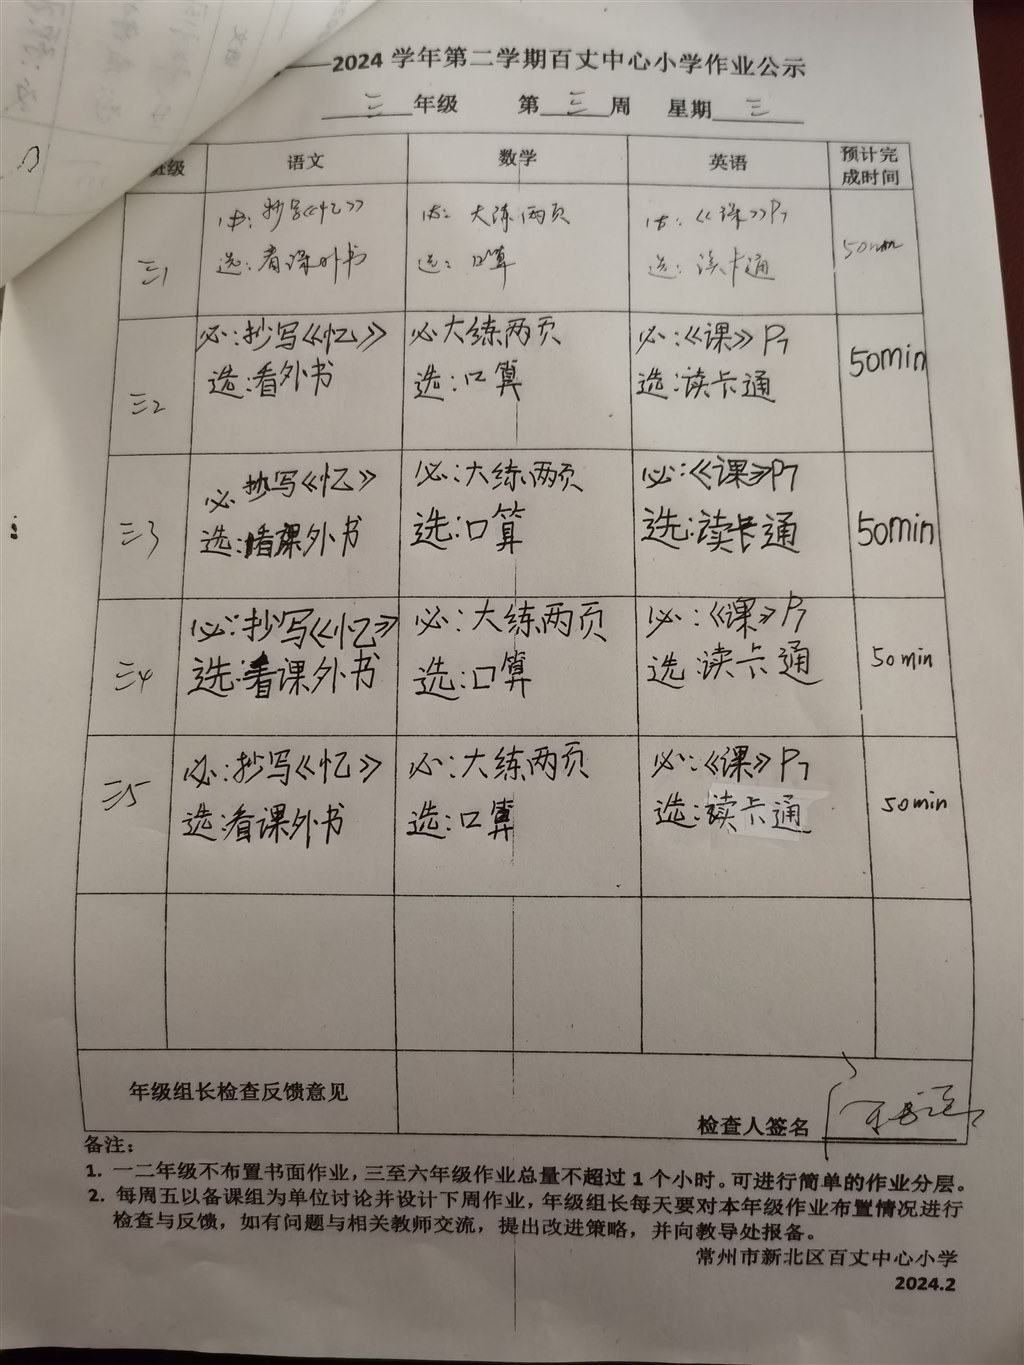 —2024 学年第二学期百丈中心小学作业公示
三 年级 第 三 周 星期 三
班级 语文 数学 英语 预计完成时间
三1 必：抄写《忆》 必：大练两页 必：《课》P7 50min
选：看课外书 选：口算 选：读卡通
三2 必：抄写《忆》 必 大练两页 必：《课》P7 50min
选：看外书 选：口算 选：读卡通
三3 必 抄写《忆》 必：大练两页 必：《课》P7 50min
选：看课外书 选：口算 选：读卡通
三4 必：抄写《忆》 必：大练两页 必：《课》P7 50min
选：看课外书 选：口算 选：读卡通
三5 必：抄写《忆》 必：大练两页 必：《课》P7 50min
选：看课外书 选：口算 选：读卡通
年级组长检查反馈意见
检查人签名
备注：
1. 一二年级不布置书面作业，三至六年级作业总量不超过 1 个小时。可进行简单的作业分层。
2. 每周五以备课组为单位讨论并设计下周作业，年级组长每天要对本年级作业布置情况进行
检查与反馈，如有问题与相关教师交流，提出改进策略，并向教导处报备。
常州市新北区百丈中心小学
2024.2